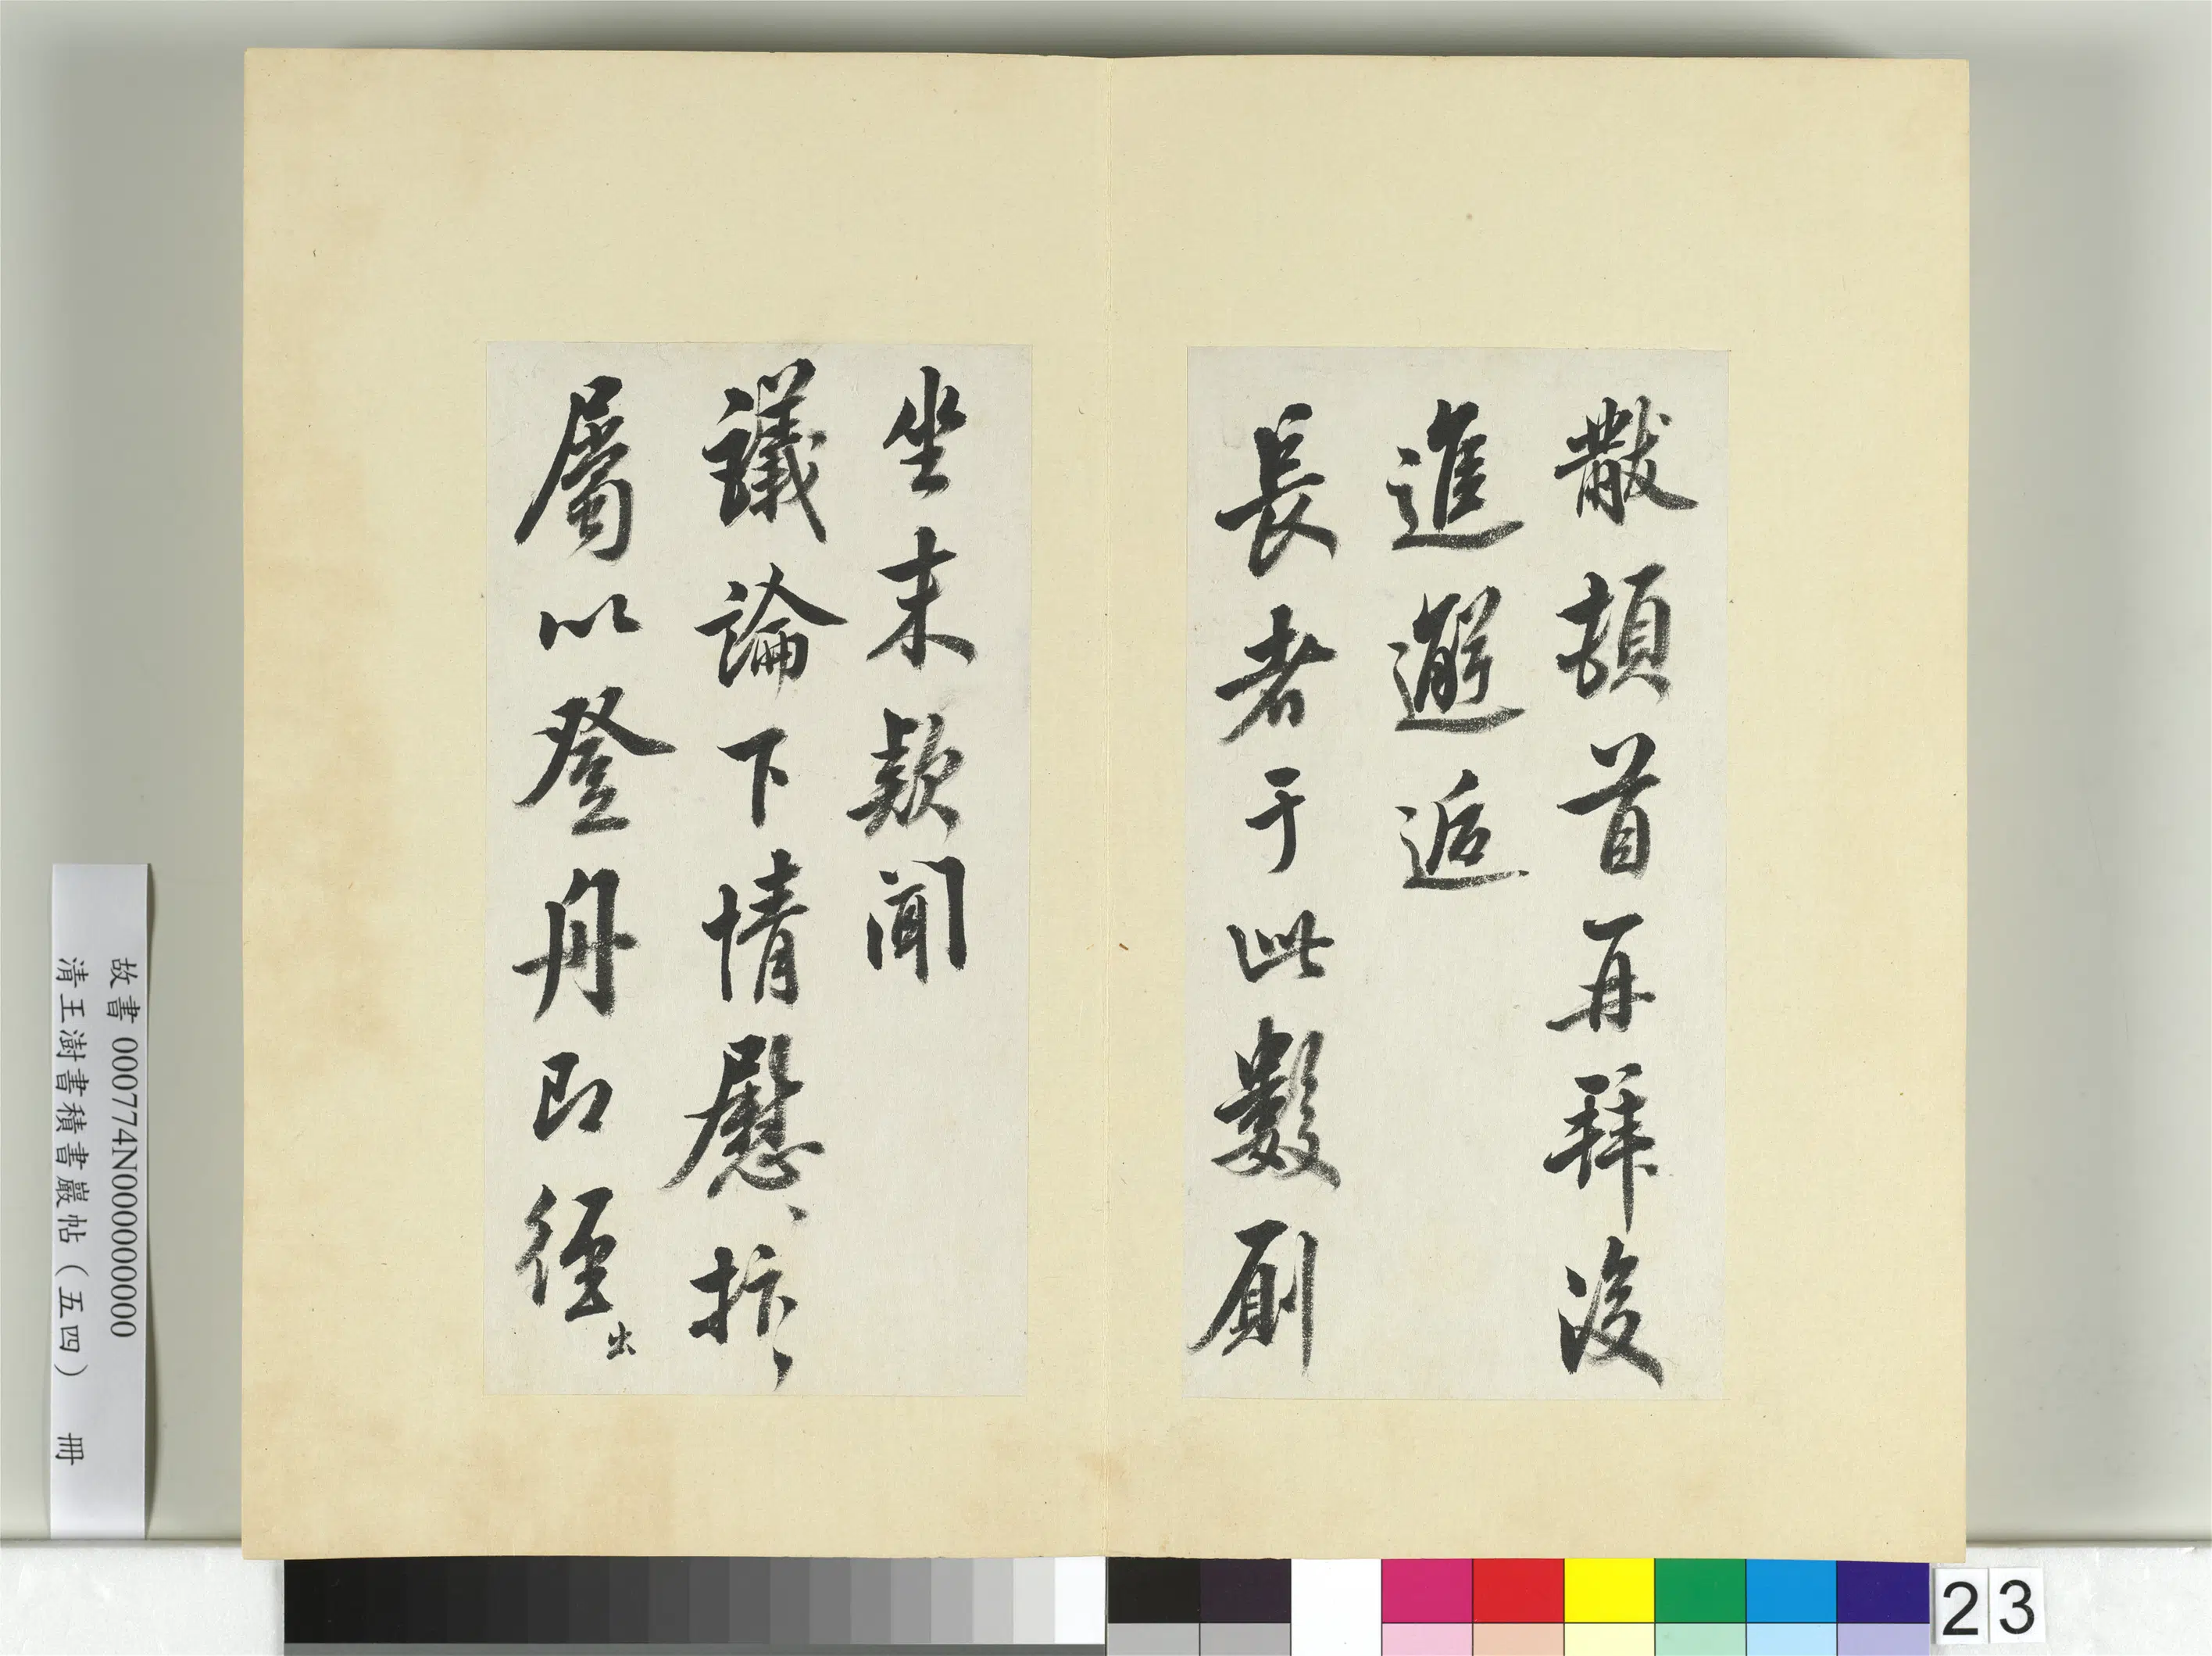 黻頓首再拜後
進邂逅
長者于此數廁
坐末款聞
議論下情慰抃
屬以登舟即徑
出
故書 000774N000000000
清王澍書積書巖帖(五四) 冊
23